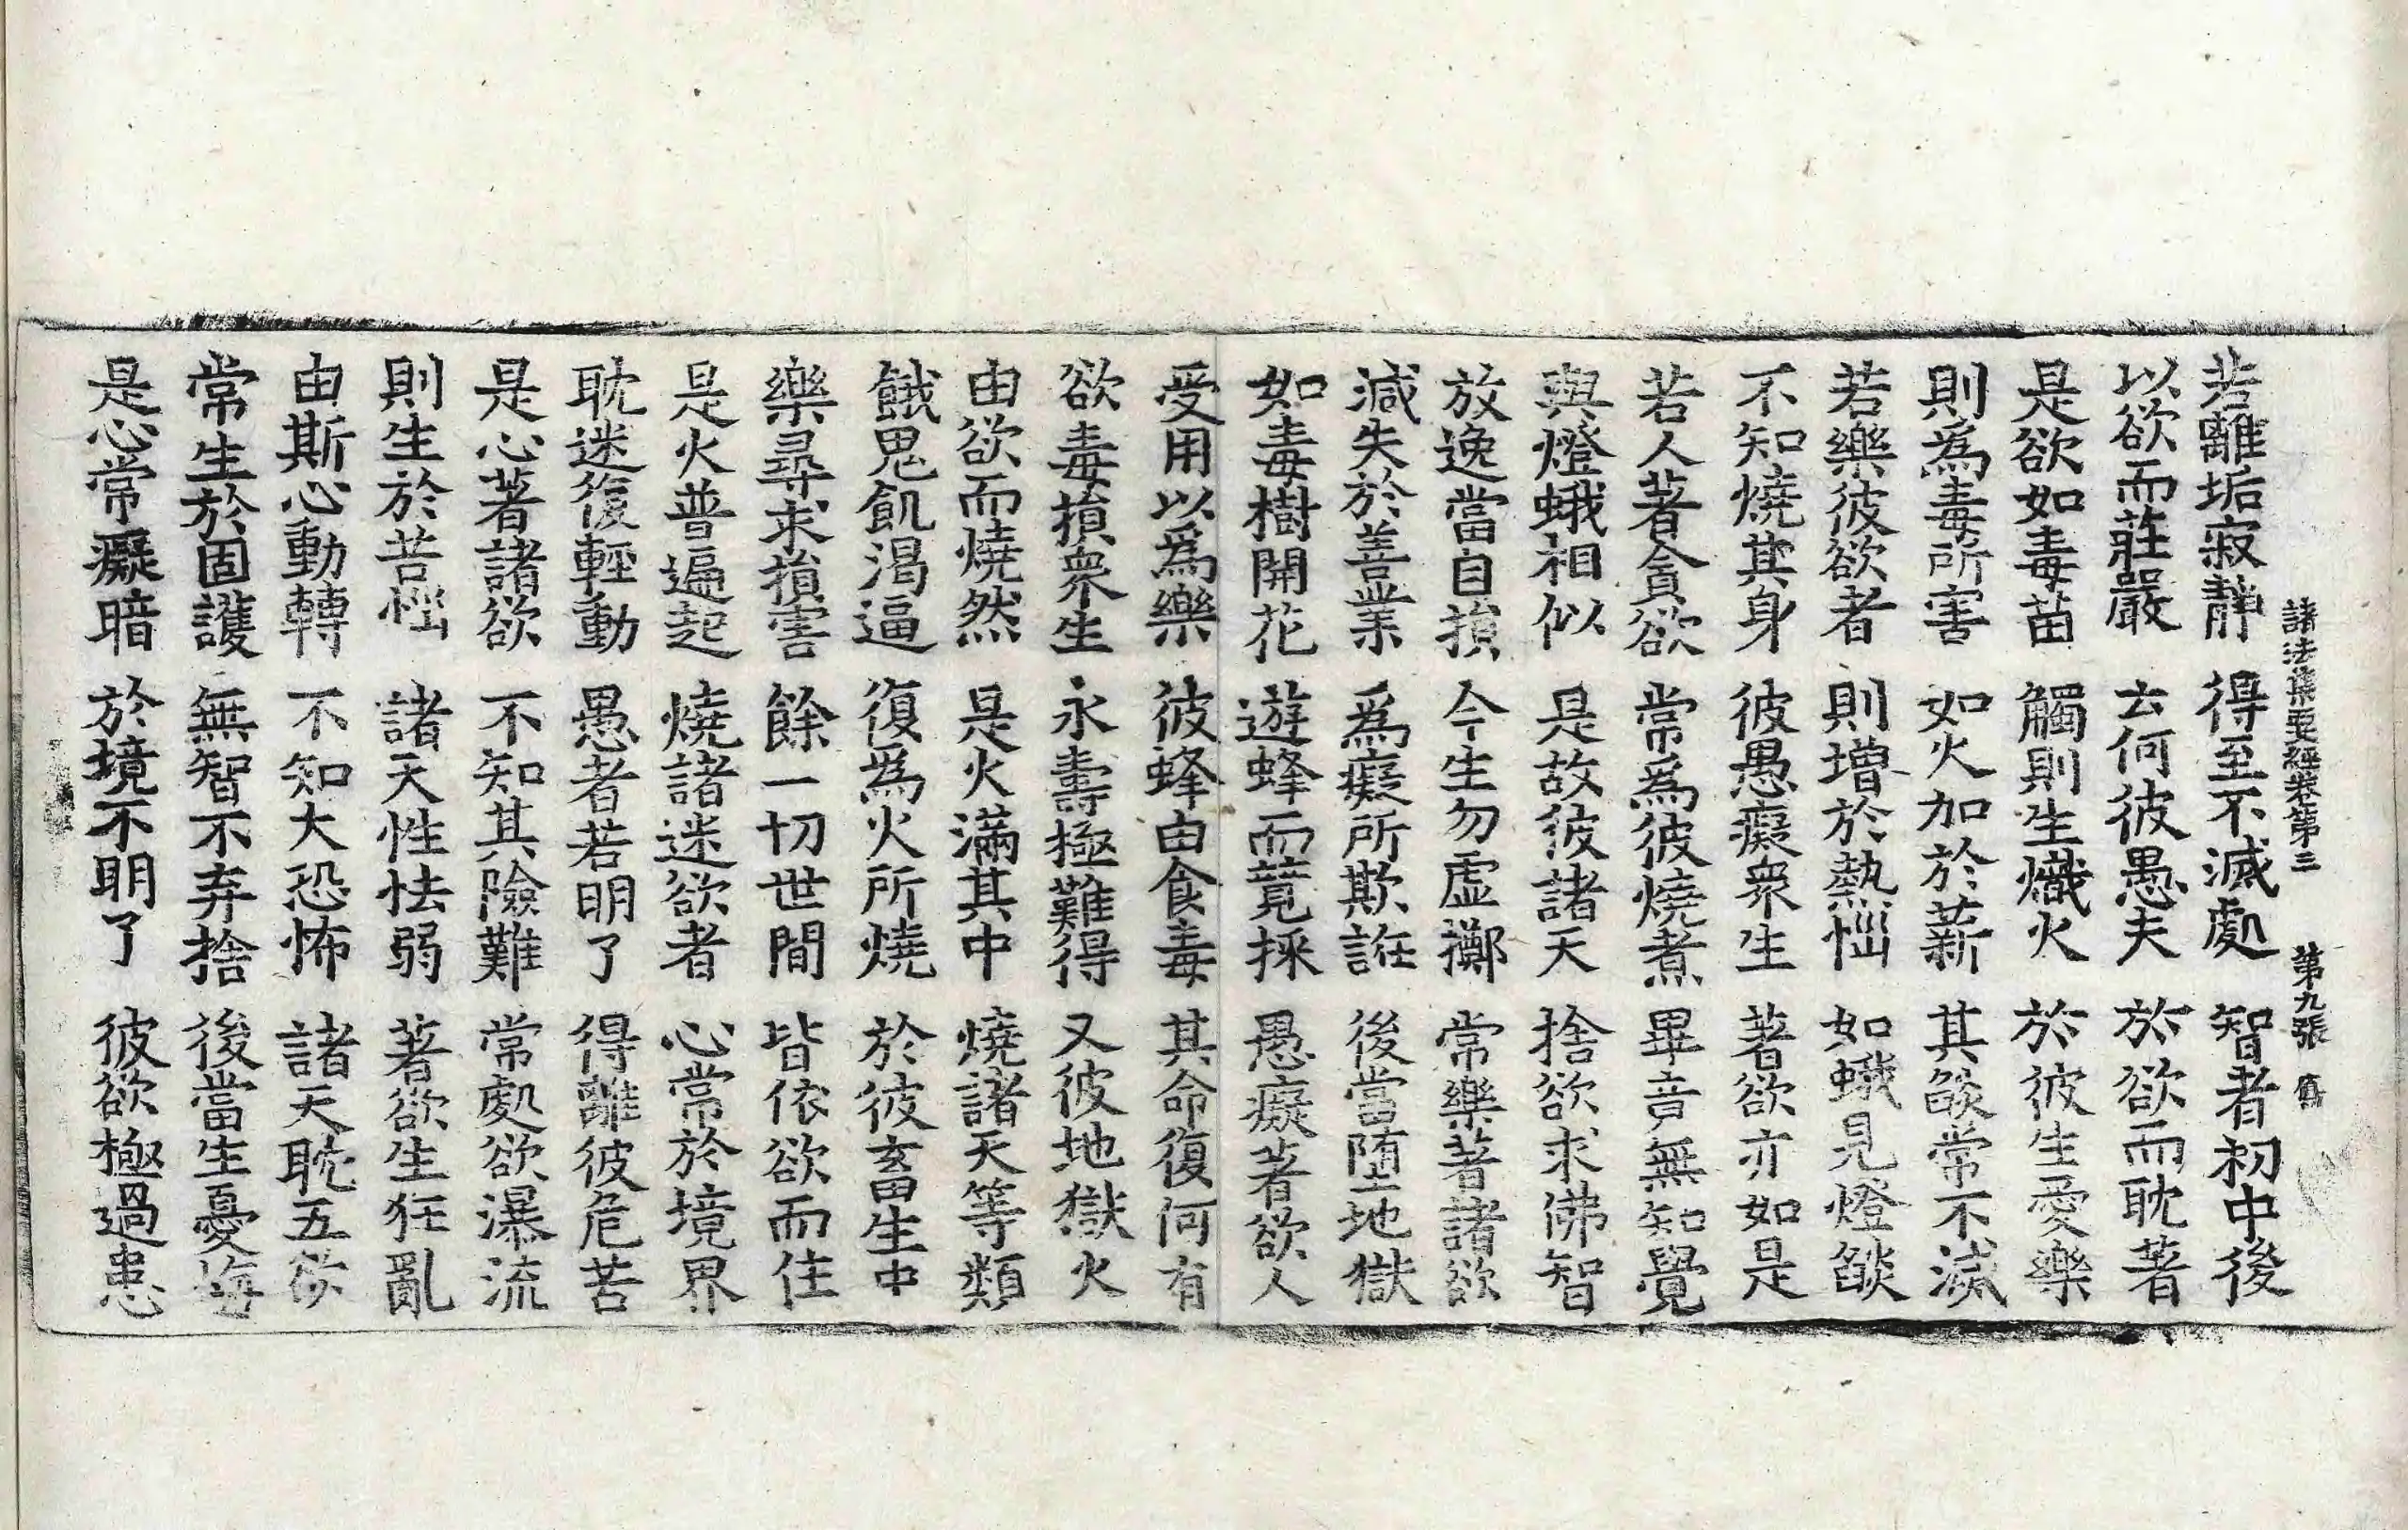 諸法集要經卷第三 第九張 舊
若離垢寂靜 得至不滅處 智者初中後
以欲而莊嚴 去何彼愚夫 於欲而耽著
是欲如毒苗 觸則生熾火 於彼生愛樂
則爲毒所害 如火加於薪 其燄常不減
若樂彼欲者 則增於熱惱 如蛾見燈燄
不知燒其身 彼愚癡衆生 著欲亦如是
若人著貪欲 常爲彼燒煮 畢竟無知覺
與燈蛾相似 是故彼諸天 捨欲求佛智
放逸當自損 今生勿虛擲 常樂著諸欲
減失於善業 爲癡所欺誑 後當墮地獄
如毒樹開花 遊蜂而競採 愚癡著欲人
受用以爲樂 彼蜂由食毒 其命復何有
欲毒損衆生 永壽極難得 又彼地獄火
由欲而燒然 是火滿其中 燒諸天等類
餓鬼飢渴逼 復爲火所燒 於彼畜生中
樂尋求損害 餘一切世間 皆依欲而住
是火普遍起 燒諸迷欲者 心常於境界
耽迷復輕動 愚者若明了 得離彼危苦
是心著諸欲 不知其險難 常處欲瀑流
則生於苦惱 諸天性怯弱 著欲生狂亂
由斯心動轉 不知大恐怖 諸天耽五欲
常生於固護 無智不弃捨 後當生憂悔
是心常癡暗 於境不明了 彼欲極過患